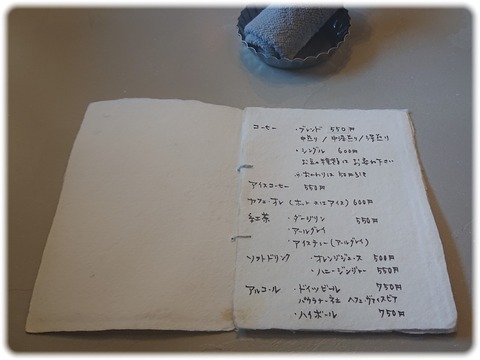 コーヒー ・ブレンド 550円
中煎り / 中深煎り / 深煎り
・シングル 600円
お豆の種類は お尋ね下さい
※おかわりは 50円引き
アイスコーヒー 550円
カフェ・オレ (ホット 又は アイス) 600円
紅茶 ・ダージリン 550円
・アールグレイ
・アイスティー (アールグレイ)
ソフトドリンク ・オレンジジュース 500円
・ハニージンジャー 550円
アルコール ・ドイツビール 750円
パウラナー ヘフェ ヴァイスビア
・ハイボール 750円